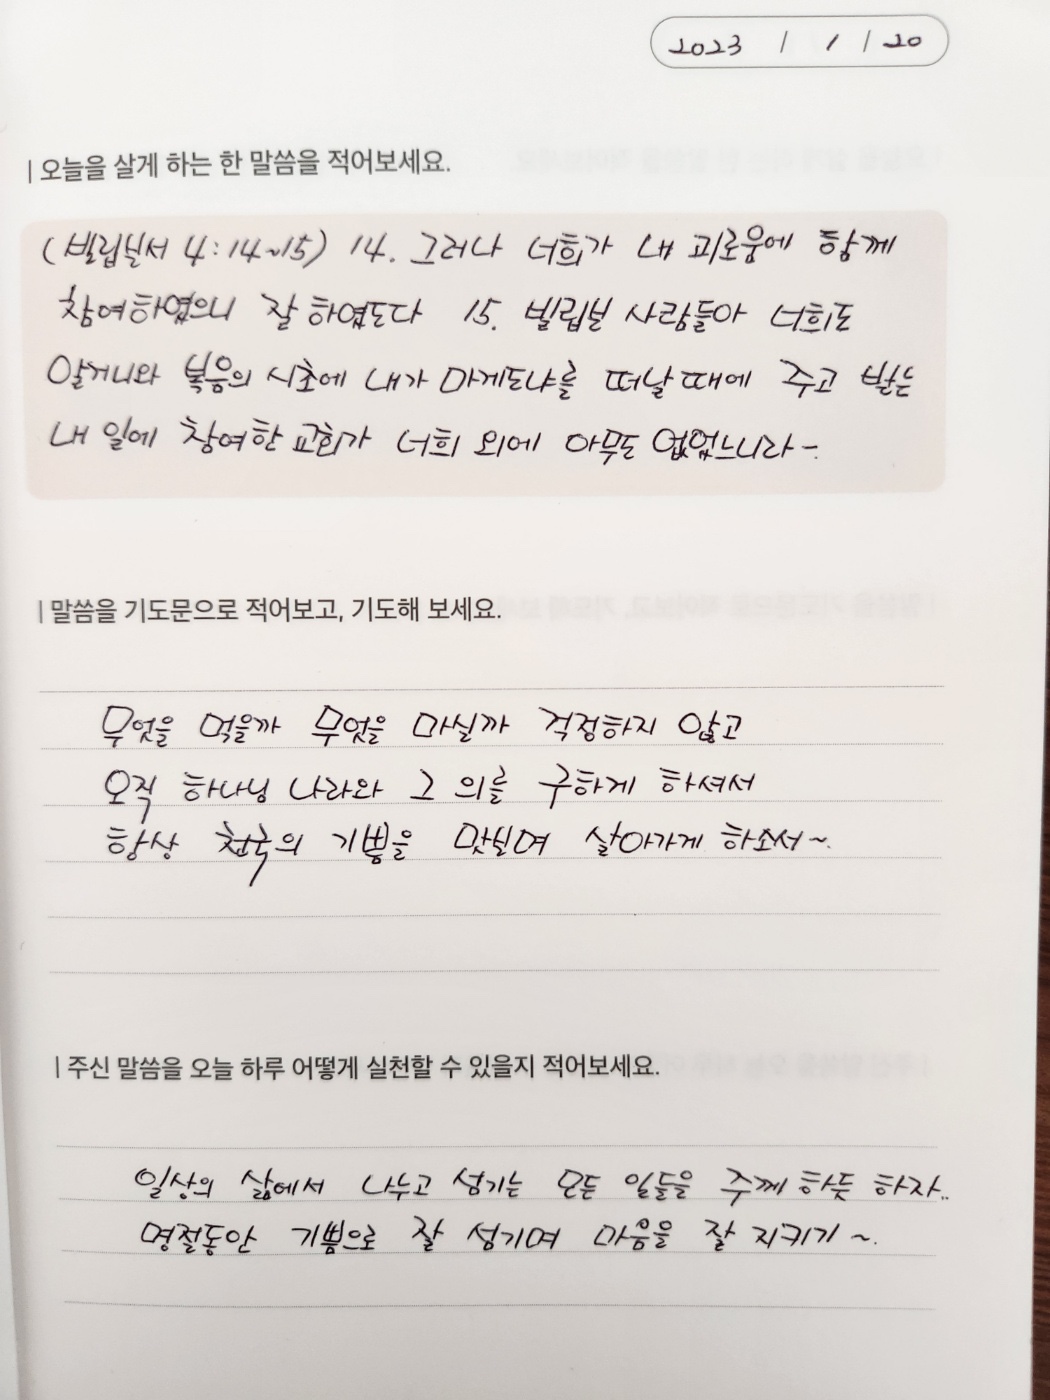 2023 / 1 / 20
| 오늘을 살게 하는 한 말씀을 적어보세요.
(빌립보서 4:14~15) 14. 그러나 너희가 내 괴로움에 함께
참여하였으니 잘 하였도다 15. 빌립보 사람들아 너희도
알거니와 복음의 시초에 내가 마게도냐를 떠날 때에 주고 받는
내 일에 참여한 교회가 너희 외에 아무도 없었느니라~.
| 말씀을 기도문으로 적어보고, 기도해 보세요.
무엇을 먹을까 무엇을 마실까 걱정하지 않고
오직 하나님 나라와 그 의를 구하게 하셔서
항상 천국의 기쁨을 맛보며 살아가게 하소서~.
| 주신 말씀을 오늘 하루 어떻게 실천할 수 있을지 적어보세요.
일상의 삶에서 나누고 섬기는 모든 일들을 주께 하듯 하자..
명절동안 기쁨으로 잘 섬기며 마음을 잘 지키기~.